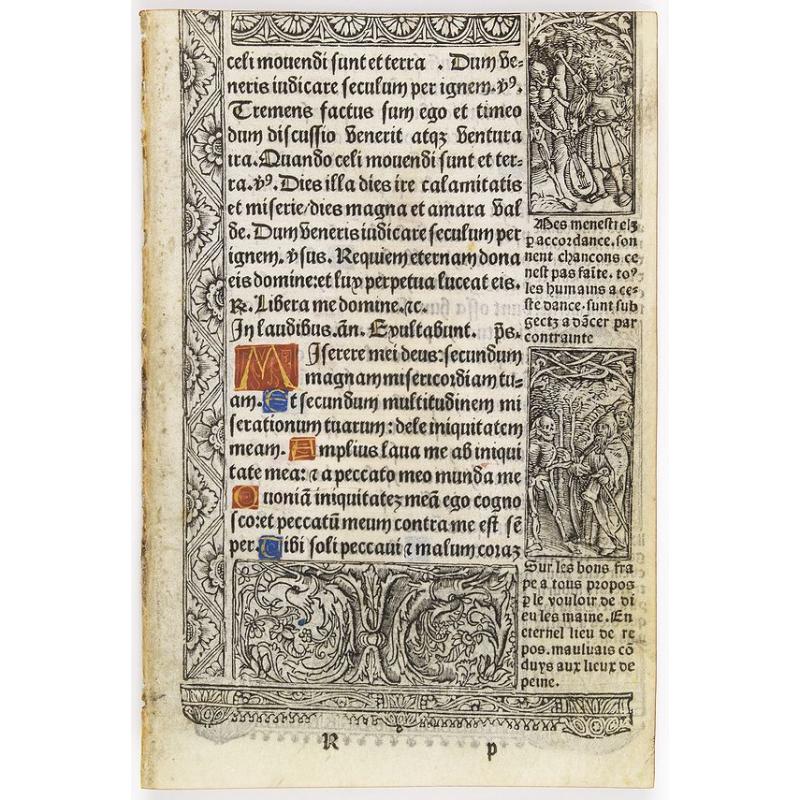 celi mouendi sunt et terra . Dum ve=
neris iudicare seculum per ignem. v̉ꝰ.
Tremens factus sum ego et timeo
dum discussio venerit atqꝫ ventura
ira. Quando celi mouendi sunt et ter-
ra. v̉ꝰ. Dies illa dies ire calamitatis
et miserie/dies magna et amara val
de. Dum veneris iudicare seculum per
ignem. v̉sus. Requiem eternam dona
eis domine: et lux perpetua luceat eis.
℞. Libera me domine. ⁊c.
In laudibus. añ. Exultabunt. p̄s.
MIserere mei deus: secundum
magnam misericordiam tu-
am. Et secundum multitudinem mi
serationum tuarum: dele iniquitatem
meam. Amplius laua me ab iniqui
tate mea: ⁊ a peccato meo munda me
Quoniā iniquitateꝫ meā ego cogno
sco: et peccatū meum contra me est sē
per. Tibi soli peccaui ⁊ malum coraꝫ
Mes menestrelꝫ
ꝑ accordance. son
nent chancons ce
nest pas faīte. toꝰ
les humains a ce=
ste dance. sunt sub
gectꝫ a dācer par
contrainte
Sur les bons fra
pe a tous propos
ꝑ le vouloir de di
eu les maine. En
eternel lieu de re
pos. mauluais cō
duys aux lieux de
peine.
R
p